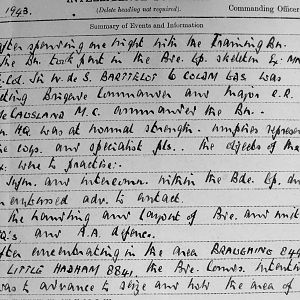 1943.
Commanding Officer
(Delete heading not required).
Summary of Events and Information
After spending one night with the Training Bn.
the Bn. took part in the Bde. Gp. skeleton Ex.
Col. Sir W. de S. BARTTELOT COLDM GDS was
Brigade Commander and Major E.R.
M.C. commanded the Bn.
HQ was at normal strength. Umpires
the coys. and specialist pls.. The objects of the
Ex: were to practise:-
and intercomn. within the Bde. Gp. in
adv. to contact.
The handling and layout of Bde. and unit
HQ's. and A.A. defence.
After concentrating in the area BRAUGHING
LITTLE HADHAM 8841. the Bde. Comds. intention
was to advance to seize and hold the area of